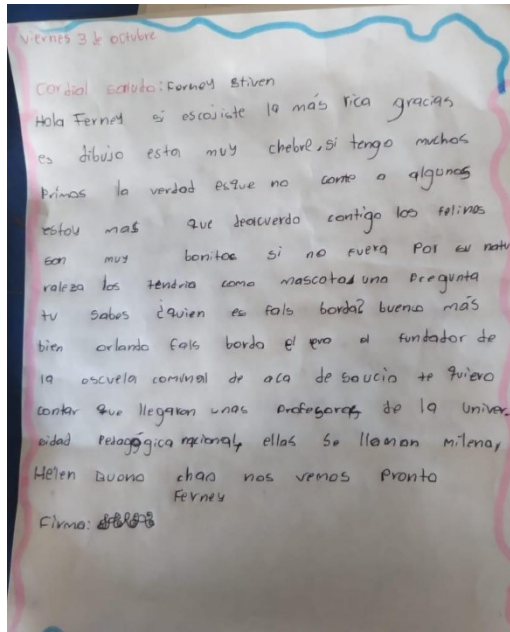 viernes 3 de octubre
Cordial saludo: Ferney Stiven
Hola Ferney si escojiste la más rica gracias
es dibujo esta muy chebre, si tengo muchos
primos la verdad esque no conte a algunos
estoy mas que deacuerdo contigo los felinos
son muy bonitos si no fuera Por su natu
raleza los tendria como mascotas una Pregunta
tu sabes ¿quien es fals borda? bueno más
bien orlando fals borda el era el fundador de
la escuela cominal de aca de saucio te quiero
contar que llegaron unas profesoras de la univer
sidad Pedagógica nacional, ellas se llaman milena,
Helen Bueno chao nos vemos pronto
Ferney
Firma: